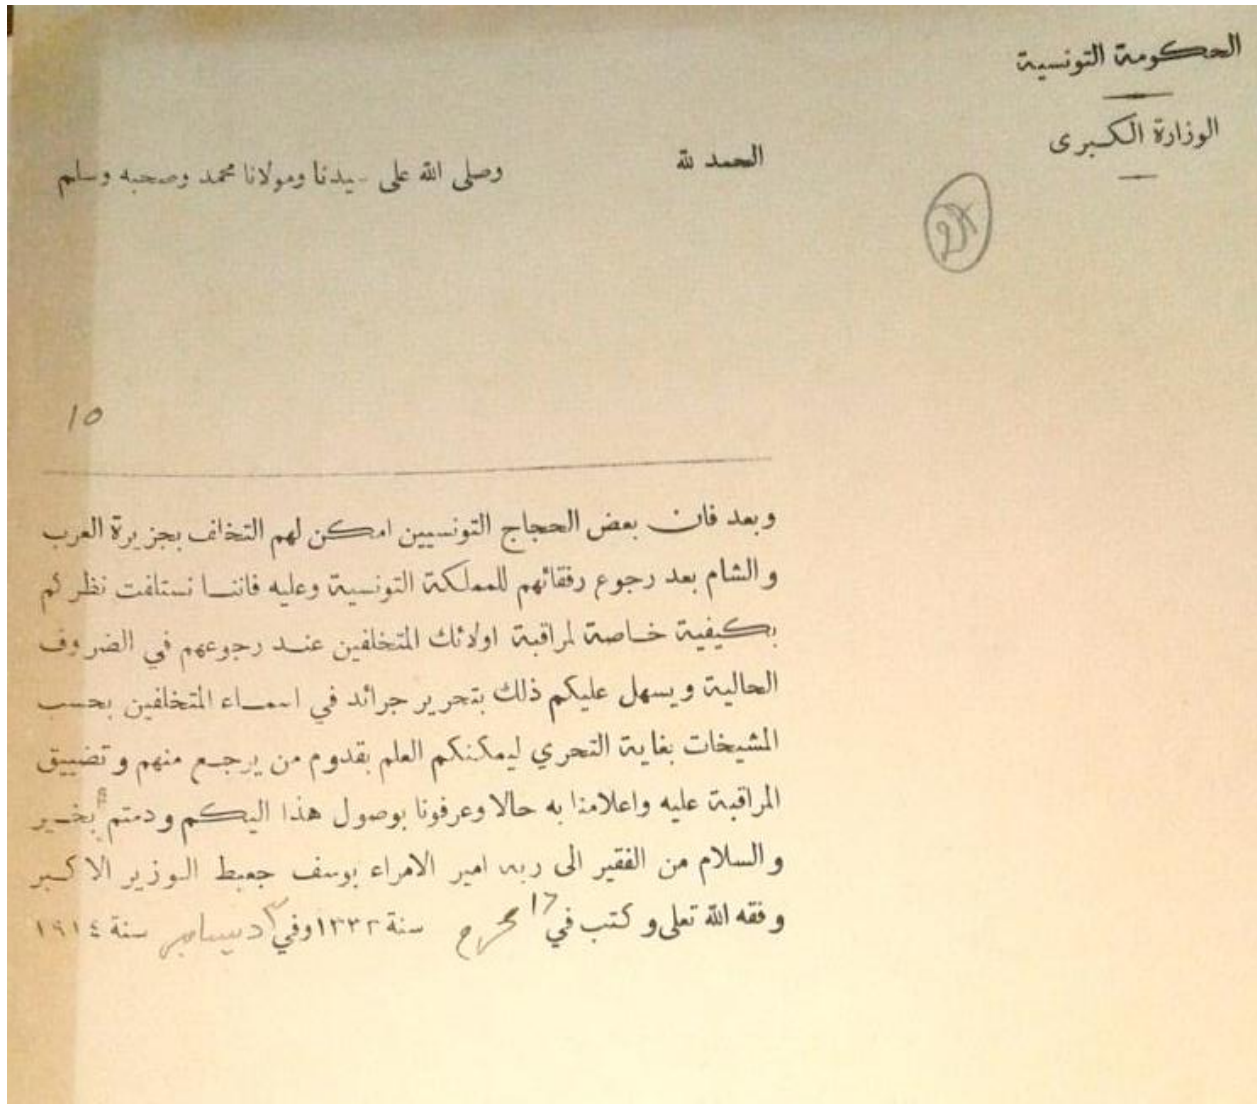 الحكومة التونسية
الوزارة الكبرى
الحمد لله
وصلى الله على سيدنا ومولانا محمد وصحبه وسلم
10
وبعد فان بعض الحجاج التونسيين امكن لهم التخلف بجزيرة العرب
والشام بعد رجوع رفقائهم للمملكة التونسية وعليه فاننا نستلفت نظركم
بكيفية خاصة لمراقبة اولائك المتخلفين عند رجوعهم في الضروف
الحالية ويسهل عليكم ذلك بتحرير جرائد في اسماء المتخلفين بحسب
المشيخات بغاية التحري ليمكنكم العلم بقدوم من يرجع منهم وتضييق
المراقبة عليه واعلامنا به حالا وعرفونا بوصول هذا اليكم ودمتم بخير
والسلام من الفقير الى ربه امير الامراء يوسف جعيط الوزير الاكبر
وفقه الله تعلى وكتب في محرم سنة ١٣٣٢ وفي ديسامبر سنة ١٩١٤